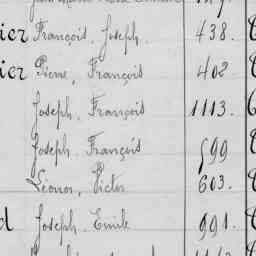 ier François, Joseph. 438.
ier Pierre, François 402.
Joseph, François 1113.
Joseph, François 599
Léonor, Victor 603.
d Joseph, Emile 991.